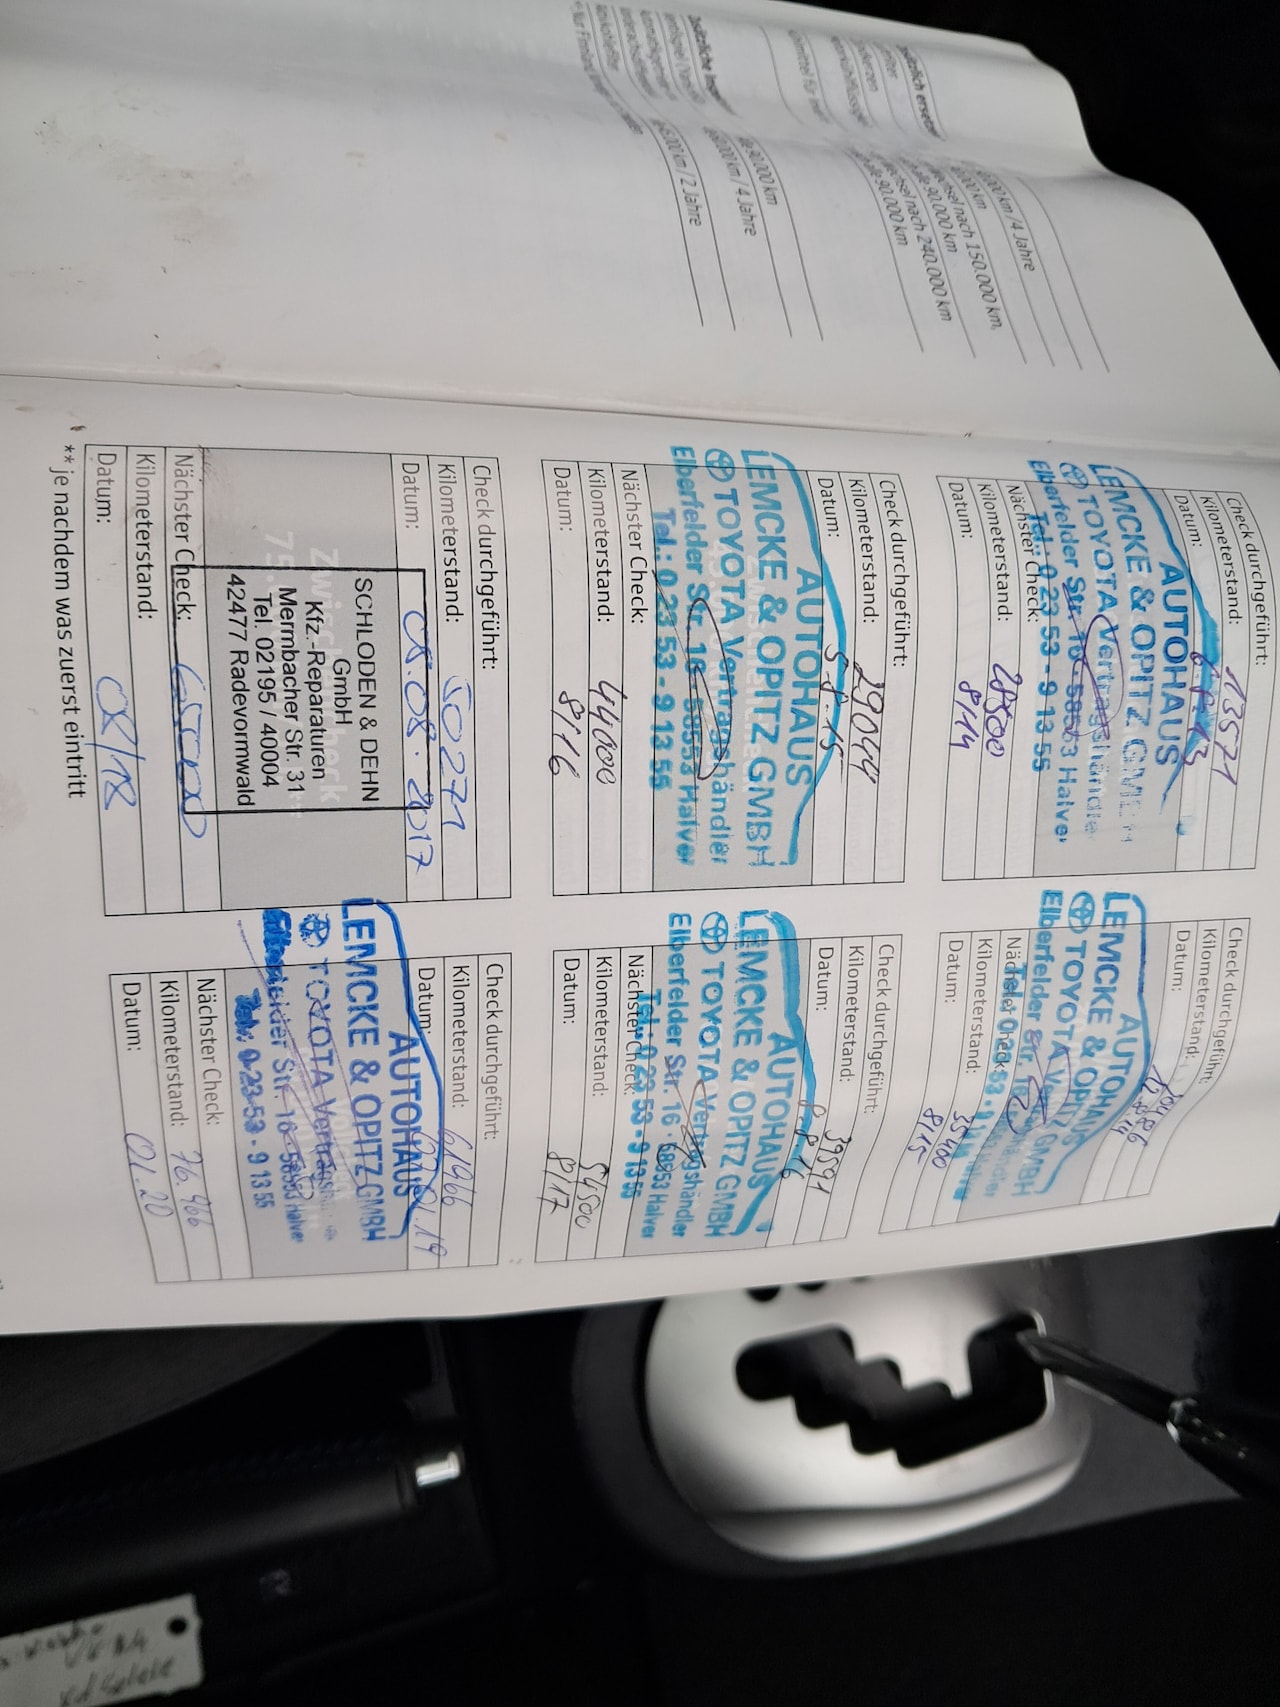 90.000 km
km / 4 Jahre
km / 2 Jahre
km / 4 Jahre
nach 150.000 km,
alle 90.000 km
nach 240.000 km
alle 90.000 km
Check durchgeführt:
Kilometerstand: 13571
Datum: 6.8.13
AUTOHAUS
LEMCKE & OPITZ GMBH
TOYOTA Vertragshändler
Elberfelder Str. 16 · 58553 Halver
Tel.: 0 23 53 - 9 13 55
Nächster Check:
Kilometerstand: 28500
Datum: 8/14
Check durchgeführt:
Kilometerstand:
Datum:
AUTOHAUS
LEMCKE & OPITZ GMBH
TOYOTA
Elberfelder Str. 16
Nächster Check:
Kilometerstand: 35400
Datum: 8/15
Check durchgeführt:
Kilometerstand: 29044
Datum: 5.8.15
AUTOHAUS
LEMCKE & OPITZ GMBH
TOYOTA Vertragshändler
Elberfelder Str. 16 58553 Halver
Tel.: 0 23 53 - 9 13 55
Nächster Check:
Kilometerstand: 44000
Datum: 8/16
Check durchgeführt:
Kilometerstand: 39591
Datum: 8.8.16
AUTOHAUS
LEMCKE & OPITZ GMBH
TOYOTA Vertragshändler
Elberfelder Str. 16 · 58553 Halver
Tel.: 0 23 53 - 9 13 55
Nächster Check:
Kilometerstand: 54500
Datum: 8/17
Check durchgeführt:
Kilometerstand: 50271
Datum: 08.08.2017
SCHLODEN & DEHN
GmbH
Kfz.-Reparaturen
Mermbacher Str. 31
Tel. 02195 / 40004
42477 Radevormwald
Nächster Check: 65000
Kilometerstand:
Datum: 08/18
Check durchgeführt:
Kilometerstand: 61966
Datum:
AUTOHAUS
LEMCKE & OPITZ GMBH
TOYOTA
Elberfelder Str. 16 · 58553 Halver
Tel.: 0 23 53 - 9 13 55
Nächster Check:
Kilometerstand: 76.966
Datum: 01.20
** je nachdem was zuerst eintritt